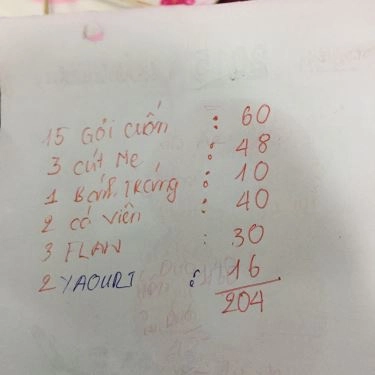 15 Gỏi cuốn : 60
3 cút Me : 48
1 Bánh Tráng : 10
2 cá viên : 40
3 FLAN : 30
2 YAOURT : 16
204